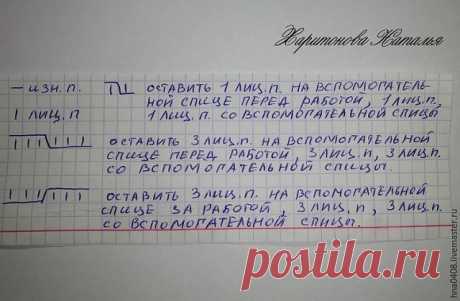 Харитонова Наталья
— изн. п. оставить 1 лиц.п. на вспомогатель-
ной спице перед работой, 1 лиц.п,
| лиц. п 1 лиц.п. со вспомогательной спицы
оставить 3 лиц.п. на вспомогательной
спице перед работой, 3 лиц.п, 3 лиц.п.
со вспомогательной спицы.
оставить 3 лиц.п. на вспомогательной
спице за работой, 3 лиц.п, 3 лиц.п.
со вспомогательной спиц.
postila.ru
hna0408.livemaster.ru